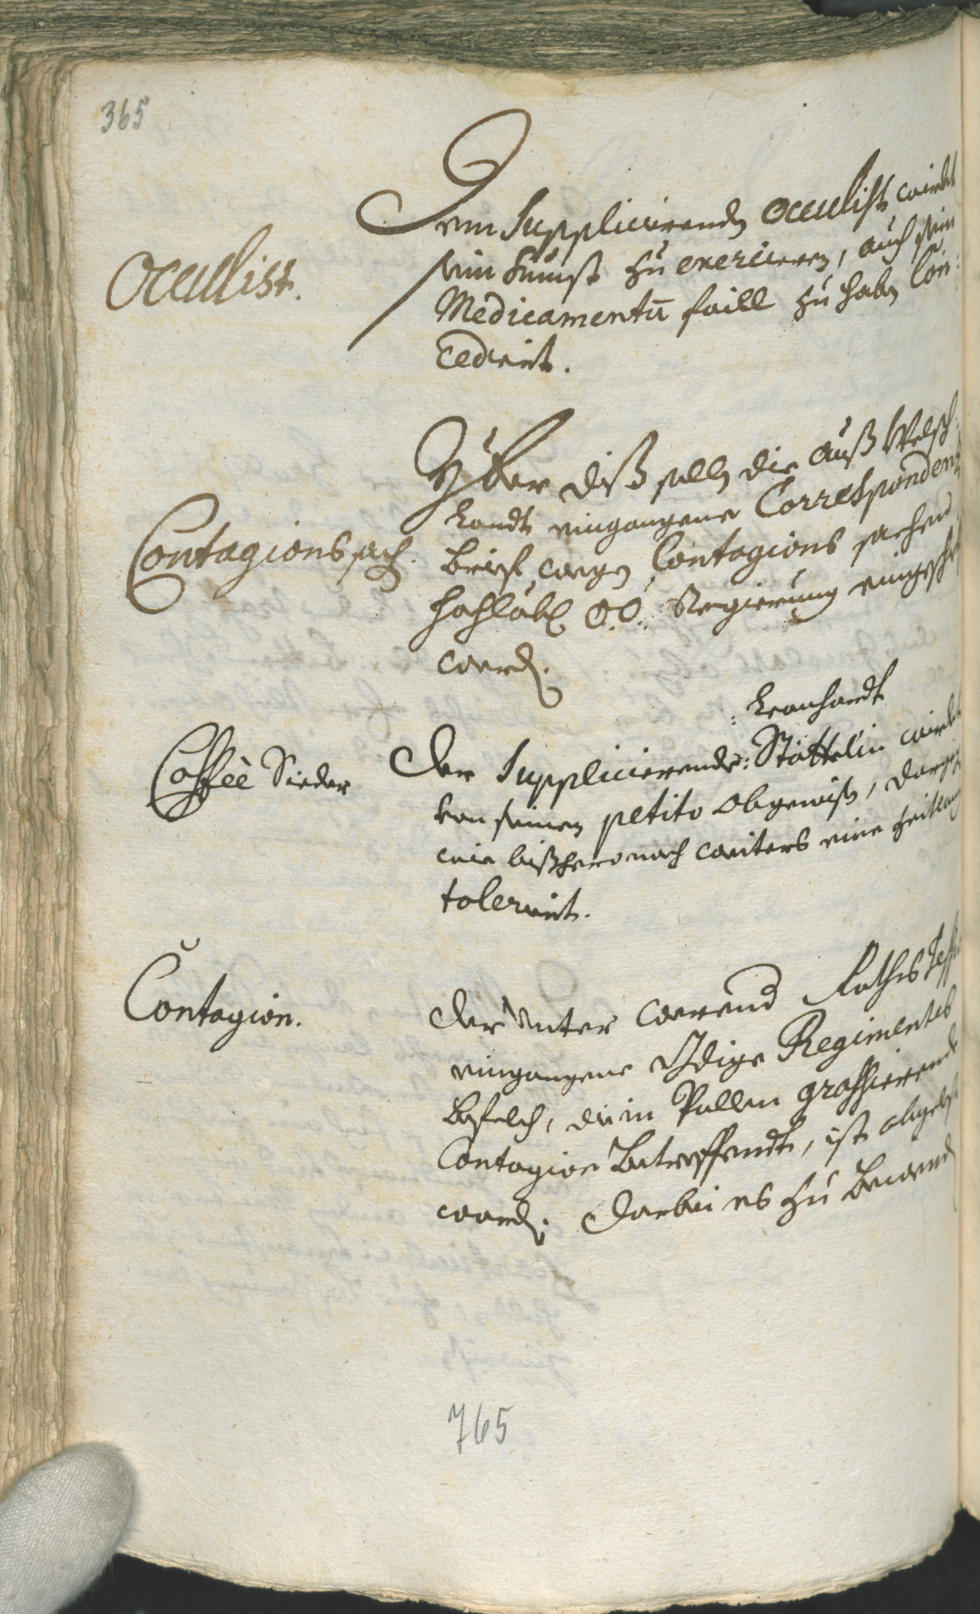 365
Oculist.
Dem Supplicirenden Oculist wirdt
sein Kunst zu exercieren, auch sein
Medicamentū faill zu haben con-
cedirt.
Contagionssach.
Yber diß sollen die auß Welsch-
landt eingangene Correspondenz
brieff wegen Contagions sachen
hochlöbl O.Ö. Regierung eingeschi
werden.
Coffèe Sieder
: Leonhardt
Der Supplicierende: Stöttelin wirdt
von seinen petito abgewisen, dargegen
wie bißhero noch weiters eine Zeitlang
tolerirt.
Contagion.
Der unter werend Raths Sess
eingangene gdige Regiments
befelch, die in Pollen grassierende
Contagion betreffendt, ist abgelesen
worden. Darbei es zu bewenden
765